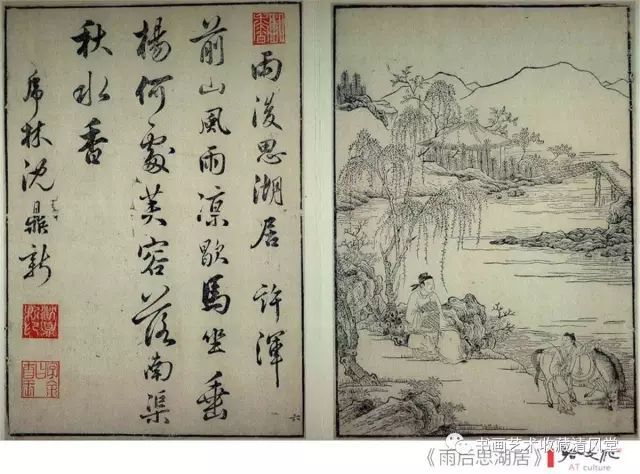 雨後思湖居 許渾
前山風雨凉歇馬坐垂
楊何處芙容落南渠
秋水香
虎林沈鼎新
《雨后思湖居》
书画艺术收藏清风堂
AT culture